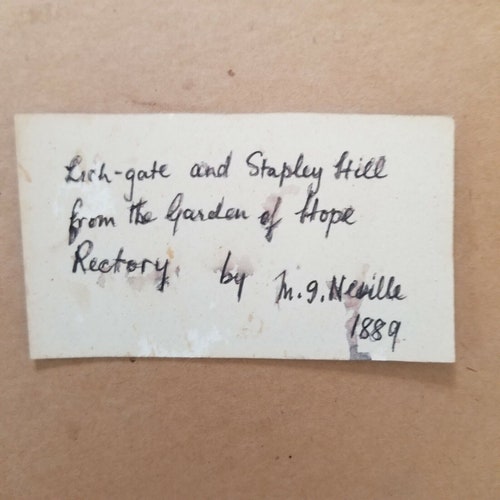 Lich-gate and Stapley Hill
from the Garden of Hope
Rectory. by M.G. Neville
1889